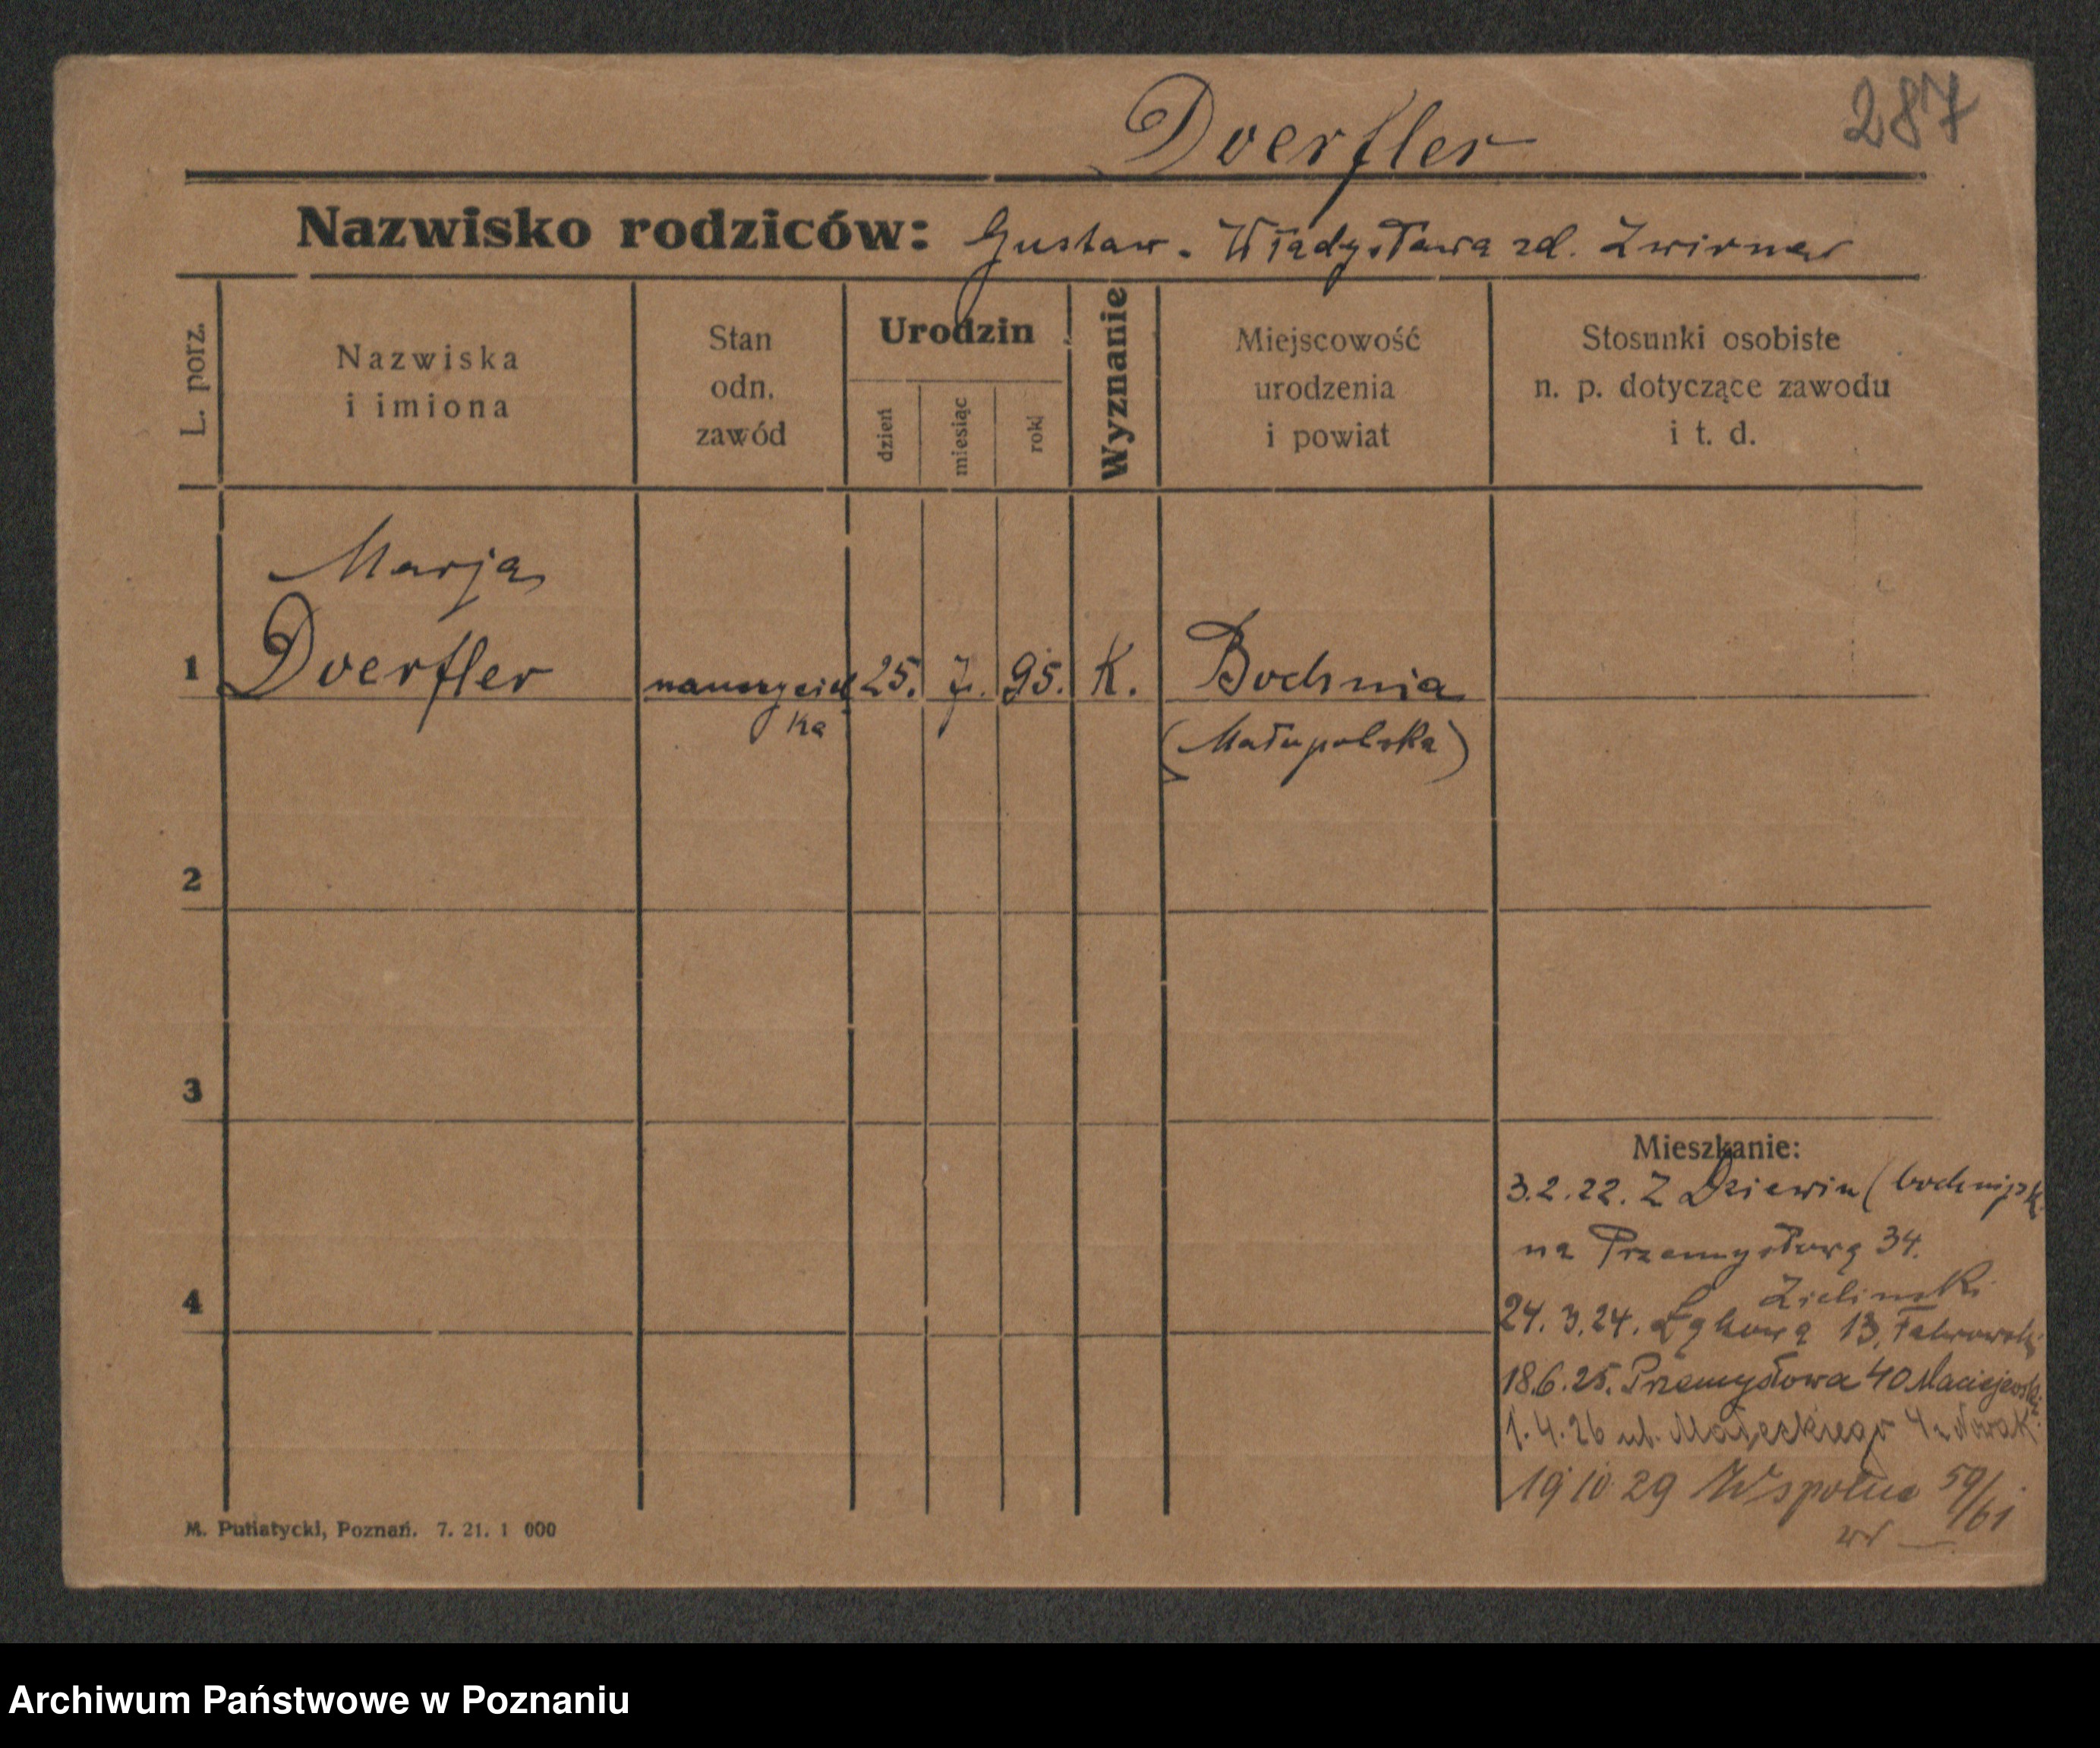 Doerfler
287
Nazwisko rodziców: Gustaw - Władysława zd. Zwirner
L. porz.
Nazwiska
i imiona
Stan
odn.
zawód
Urodzin
dzień
miesiąc
rok
Wyznanie
Miejscowość
urodzenia
i powiat
Stosunki osobiste
n. p. dotyczące zawodu
i t. d.
Marja
1 Doerfler nauczyciel 25. 7. 95. K. Bochnia
ka (Małopolska)
2
3
Mieszkanie:
3.2.22. Z Dziewin (bochnijsk.
na Przemysłową 34.
Zielinski
4
24.3.24. Łąkową 13.
18.6.25. Przemysłowa 40 Maciejewski
1.4.26 ul. Małeckiego 4 Nowak
19 10 29 Wspolna 59/61
M. Putiatycki, Poznań. 7. 21. 1 000
Archiwum Państwowe w Poznaniu